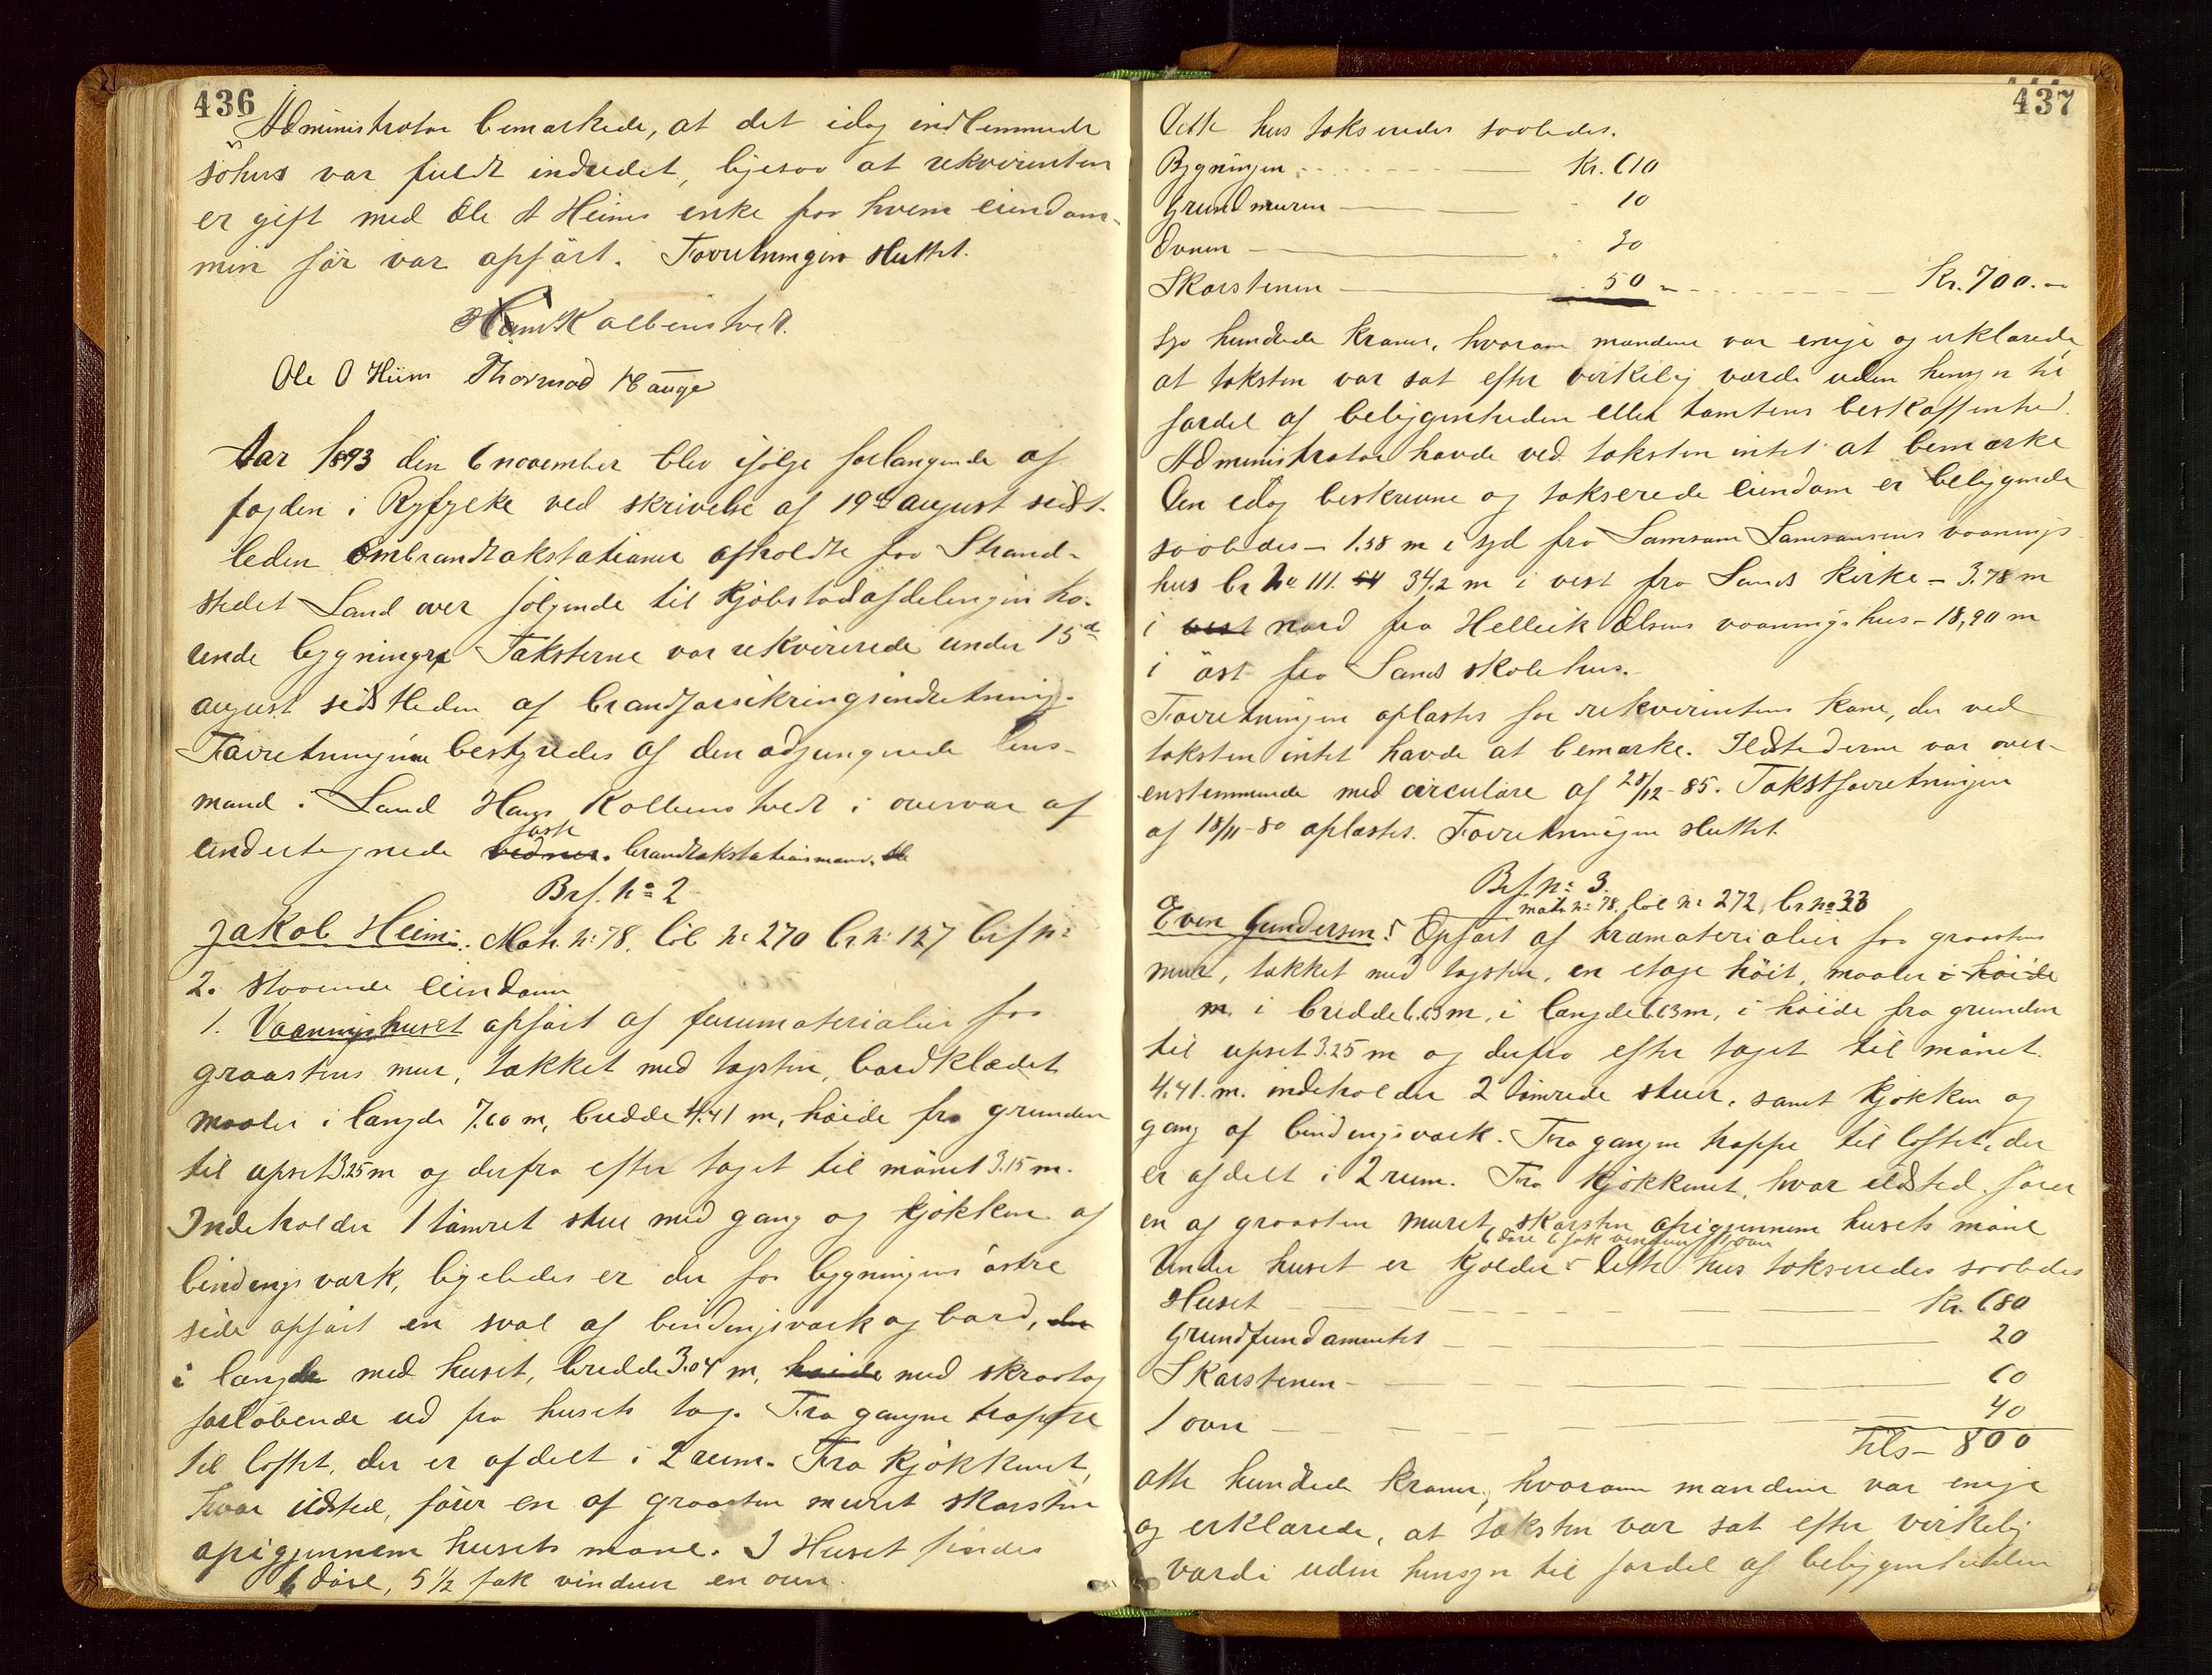 436
Administrator bemærkede, at det idag indlemmede
søhus var fuldt indredet, ligesaa at rekvirenten
er gift med Ole A Heims enke paa hvem eiendom-
men før var opført. Forretningen sluttet.
Hans Kolbenstvedt.
Ole O Hiim Thormod Hauge
Aar 1893 den 6 november blev ifølge forlangende af
fogden i Ryfylke ved skrivelse af 19de august sidst-
leden ombrandtakstationer afholdte paa Strand-
stedet Sand over følgende til Kjøbstadafdelingen hø-
rende bygninger Taksterne var rekvirerede under 15de
august sidstleden af brandforsikringsindretning.
Forretningerne bestyredes af den adjungerede lens-
mand i Sand Hans Kolbenstvedt i overvær af
undertegnede faste brandtakstationsmænd.
Brf. No 2
Jakob Heim: Matr. No 78. löb No 270 br No 127 brf No
2. staaende eiendom
1. Vaaningshuset opført af furumaterialier paa
graastens mur, tækket med tagsten, bordklædet
maaler i længde 7.60 m, bredde 4.41 m, høide fra grunden
til opset 3.25 m og derfra efter taget til mønet 3.15 m.
Indeholder 1 tømret stue med gang og kjøkken af
bindingsværk, ligeledes er der paa bygningens østre
side opført en sval af bindingsværk og bord, der
i længde med huset, bredde 3.04 m, høide med skraatag
forløbende ud fra husets tag. Fra gangen trappe
til loftet, der er afdelt i 2 rum. Fra kjøkkenet,
hvor ildsted, fører en af graasten muret skorsten
opigjennem husets møne. I Huset findes
6 døre, 5 1/2 fak vinduer en ovn.
437
Dette hus takseredes saaledes.
Bygningen Kr. 610
Grundmuren 10
Ovnen 30
Skorstenen 50 Kr. 700.-
syv hundrede kroner, hvorom mændene var enige og erklærede
at taksten var sat efter virkelig værdi uden hensyn til
fordel af beliggenheden eller tomtens beskaffenhed.
Administrator havde ved taksten intet at bemærke
Den idag beskrevne og takserede eiendom er beliggende
saaledes - 1.58 m i syd fra Samson Samsonsens vaanings
hus br No 111. 34,2 m i vest fra Sands kirke - 3.78 m
i vest nord fra Helleik Olsens vaaningshus - 18,90 m
i øst fra Sands skolehus.
Forretningen oplæstes for rekvirentens kone, der ved
taksten intet havde at bemærke. Ildstederne var over-
enstemmende med circulære af 28/12-85. Takstforretningen
af 18/11-80 oplæstes. Forretningen sluttet.
Brf. No 3.
matr No 78. löb No 272, br No 33
Even Gundersen: Opført af træmaterialier paa graastens
mur, tækket med tagsten, en etage høit, maaler i høide
m. i bredde 6.63 m, i længde 6.63 m, i høide fra grunden
til opset 3.25 m og derfra efter taget til mønet
4.41. m. indeholder 2 tømrede stuer, samt kjøkken og
gang af bindingsværk. Fra gangen trappe til loftet, der
er afdelt i 2 rum. Fra kjøkkenet, hvor ildsted, fører
en af graasten muret skorsten opigjennem husets møne
6 døre 6 fak vinduer 1 ovn
Under huset er kjelder Dette hus takseredes saaledes
Huset Kr. 680
Grundfundamentet 20
Skorstenen 60
1 ovn 40
Tils - 800
otte hundrede kroner, hvorom mændene var enige
og erklærede, at taksten var sat efter virkelig
værdi uden hensyn til fordel af beliggenheden